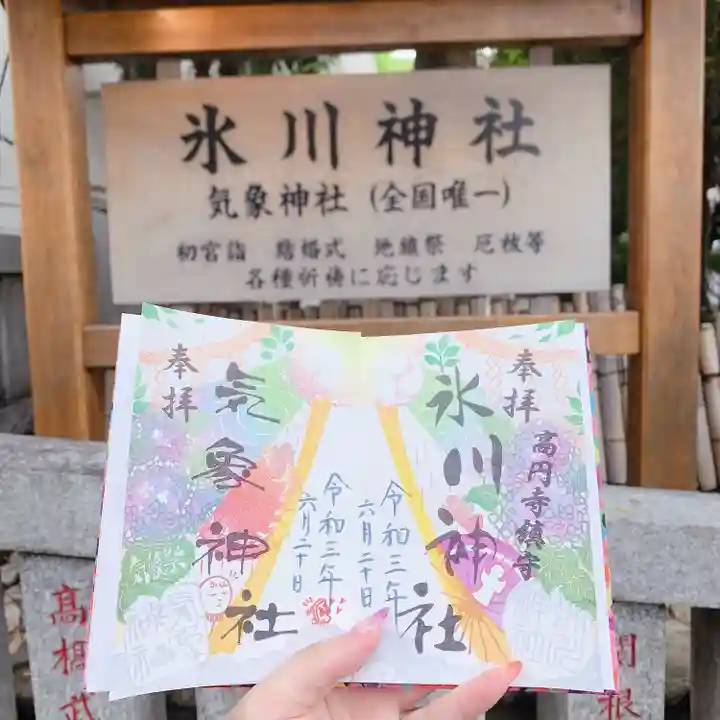 氷川神社
気象神社 (全国唯一)
初宮詣 結婚式 地鎮祭 厄祓等
各種祈祷に応じます
奉拝
高円寺鎮守
氷川神社
令和三年
六月二十日
奉拝
気象神社
令和三年
六月二十日
高橋武
関根